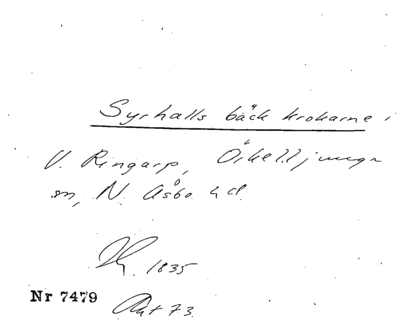 Syrhalls bäck krokarne i
V. Ringarp, Örkelljunga
sn, N. Åsbo hd.
1835
Nr 7479
Akt 73.